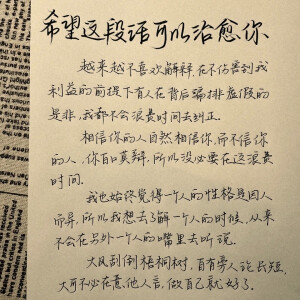 希望这段话可以治愈你
越来越不喜欢解释，在不伤害到我
利益的前提下有人在背后编排虚假的
是非，我都不会浪费时间去纠正。
相信你的人自然相信你，而不信你
的人，你百口莫辩，所以没必要在这浪费
时间。
我也始终觉得一个人的性格是因人
而异，所以我想去了解一个人的时候，从来
不会在另外一个人的嘴里去听说。
大风刮倒梧桐树，自有旁人论长短，
大可不必在意他人言，做自己就好了。